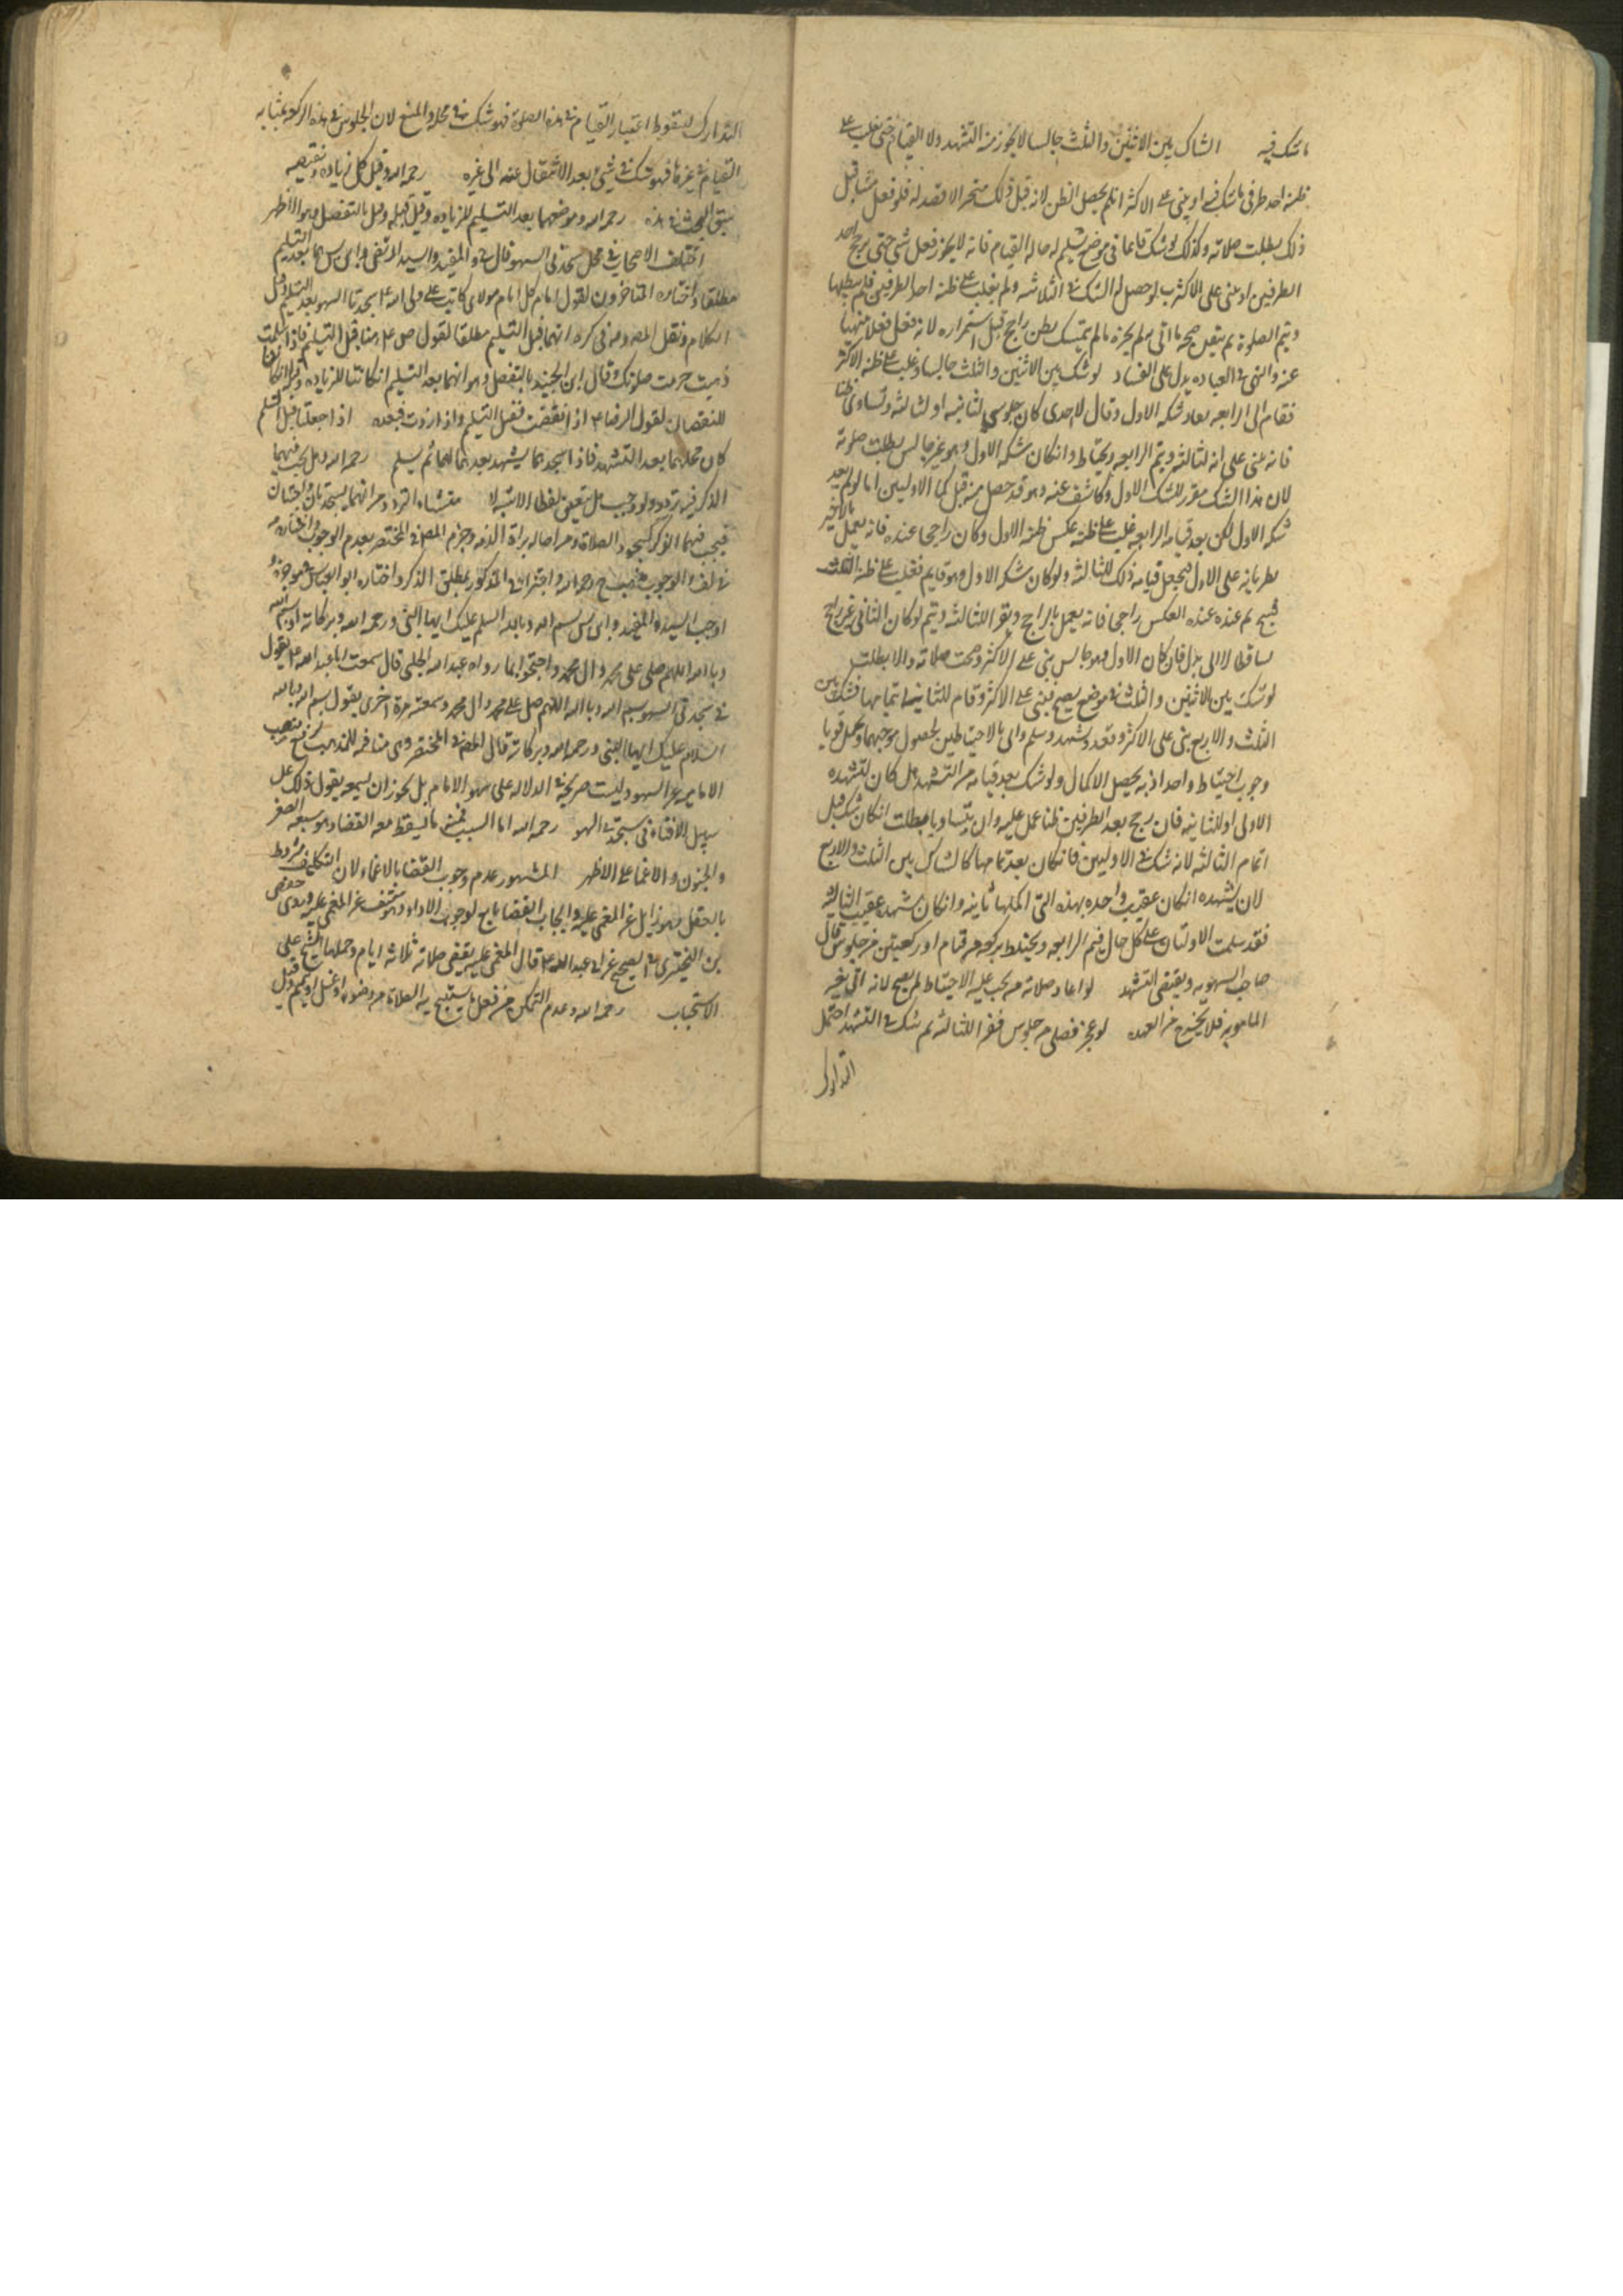 ما شك فيه الشاك بين الاثنين والثلث جالسا لا يجوز منه التشهد ولا القيام حتى يغلب على
ظنه احد طرفى ما شك فيه او يبنى على الاكثر ان لم يحصل الظن لانه قبل ذلك متحير لا قصد له فلو فعل شيئا قبل
ذلك بطلت صلاته وكذلك لو شك قائما فى موضع يسلم له حاله القيام فانه لا يجوز فعل شى حتى يرجح احد
الطرفين او يبنى على الاكثر لو حصل له الشك فى الثلاثه ولم يغلب على ظنه احد الطرفين فلم يبطلها
ويتم الصلوة ثم تيقن صحه ما اتى به لم يجزه ما لم يتمسك بظن راجح قبل استمراره لانه فعل فعلا منهيا
عنه والنهى فى العباده يدل على الفساد لو شك بين الاثنين والثلث جالسا وغلب على ظنه الاكثر
فقام الى الرابعه فعاد شكه الاول وقال لا ادرى كان جلوسى لثانيه او لثالثه وتساوى ظنا
فانه يبنى على انه لثالثه ويتم الرابعه ويحتاط وان كان شكه الاول وهو غير جالس بطلت صلوته
لان هذا الشك مقرر للشك الاول وكاشف عنه وهو قد حصل منه قبل اكمال الاوليين اما لو لم يعد
شكه الاول لكن بعد قيامه الرابعه غلب على ظنه عكس ظنه الاول وكان راجحا عنده فانه يعمل بالاخير
بطريانه على الاول فيجعل قيامه ذلك للثالثه ولو كان شكه الاول وهو قايم فغلب على ظنه الثلث
ثم عنده العكس راجحا فانه يعمل بالراجح ويقر لثالثه ويتم لو كان الثانى غير راجح
تساقطا لا الى بدل فان كان الاول وهو جالس بنى على الاكثر وصحت صلاته والا بطلت
لو شك بين الاثنين والثلث فى موضع يصح فبنى على الاكثر وقام للثانيه لتمامها فشك بين
الثلث والاربع بنى على الاكثر وقعد وتشهد وسلم واتى بالاحتياطين لحصول موجبهما ويحتمل قويا
وجوب احتياط واحد اذ به يحصل الاكمال ولو شك بعد قيامه من التشهد هل كان تشهده
الاولى او للثانيه فان رجح بعد الطرفين ظنا عمل عليه وان تساويا بطلت ان كان شك قبل
اتمام الثالثه لانه شك فى الاوليين فان كان بعد تمامها كالشاك بين الثلث والاربع
لان تشهده ان كان عقيب واحده بهذه التى اكملها ثانيه وان كان تشهده عقيب الثالثه
فقد سلمت الاولتان على كل حال فيتم الرابعه ويحتاط بركعه من قيام او ركعتين من جلوس قال
صاحب السهويه ويقتضى التشهد لو اعاد صلاته من يجب عليه الاحتياط لم يصح لانه اتى بغير
المامور به فلا يخرج من العهده لو عجز فصلى من جلوس فقرا للثالثه ثم شك فى التشهد احتمل
التدارك
التدارك لسقوط اعتبار القيام فى هذه الصلوة فهو شك فى محله والمنع لان الجلوس فى هذه الركعه بمثابه
القيام فى غيرها فهو شك فى شىء بعد الانتقال عنه الى غيره رحمه الله وقيل كل زياده ونقيصه
سبق البحث فى هذه رحمه الله وموضعهما بعد التسليم للزياده وقيل قبله وقيل بالتفصيل وهو الاظهر
اختلف الاصحاب فى محل سجدتى السهو قال الشيخ والمفيد والسيد المرتضى وابن هما بعد التسليم
مطلقا واختاره المتاخرون لقول امام كل امام مولاى كاتب على ولى الله ع سجدتا السهو بعد التسليم وقبل
الكلام ونقل المصنف ومن فى كره انهما قبل التسليم مطلقا لقول قبل التسليم فاذا سلمت
ذهبت حرمت صلوتك وقال ابن الجنيد بالتفصيل وهو انهما بعد التسليم ان كانتا للزياده وقبله ان كانتا
للنقصان لقول الرضا ع اذا نقصت فقبل التسليم واذا زدت فبعده اذا جعلتا قبل التسليم
كان محلهما بعد التشهد فاذا سجدهما يتشهد بعدهما لهما ثم يسلم رحمه الله وهل يجب فيهما
الذكر فيه تردد ولو وجب هل يتعين لفظا الاشبه لا منشاء التردد من انهما سجدتان واجبتان
فيجب فيهما الذكر كسجود الصلاة ومن اصاله براة الذمه وجزم المصنف فى المختصر بعدم الوجوب واختاره
فى لف والوجوب مذهب الشيخ رحمه الله واجتزا فى المذكور بمطلق الذكر واختاره ابو العباس فى موجزه
اوجب السيد والمفيد وابن بسم الله وبالله السلم عليك ايها النبى ورحمه الله وبركاته او بسم الله
وبالله اللهم صلى على محمد وال محمد واحتجوا بما رواه عبيد الله الحلبى قال سمعت ابا عبد الله ع يقول
فى سجدتى السهو بسم الله وبالله اللهم صل على محمد وال محمد وسمعته مرة اخرى يقول بسم الله وبالله
السلام عليك ايها النبى ورحمه الله وبركاته قال المصنف فى المختصر وهى منافيه للمذهب لرفع منصب
الامامه عن السهو وليست صريحه فى الدلاله على سهو الامام بل يجوز ان يسمعه يقول ذلك على
سبيل الافتاء فى سجدتى السهو رحمه الله اما السبب فمنه ما يسقط معه القضا وهو سبعه الصغر
والجنون والاغما على الاظهر المشهور عدم وجوب القضا بالاغماء لان التكليف مشروط
بالعقل وهو زايل عن المغمى عليه وايجاب القضا تابع لوجوب الاداء وهو منتف عن المغمى عليه وروى حفص
بن البخترى فى الصحيح عن ابى عبد الله ع قال المغمى عليه يقضى صلاته ثلاثه ايام وحملها الشيخ على
الاستحباب رحمه الله وعدم التمكن من فعل ما يستبيح به الصلاة من وضوء او غسل او تيمم وقيل